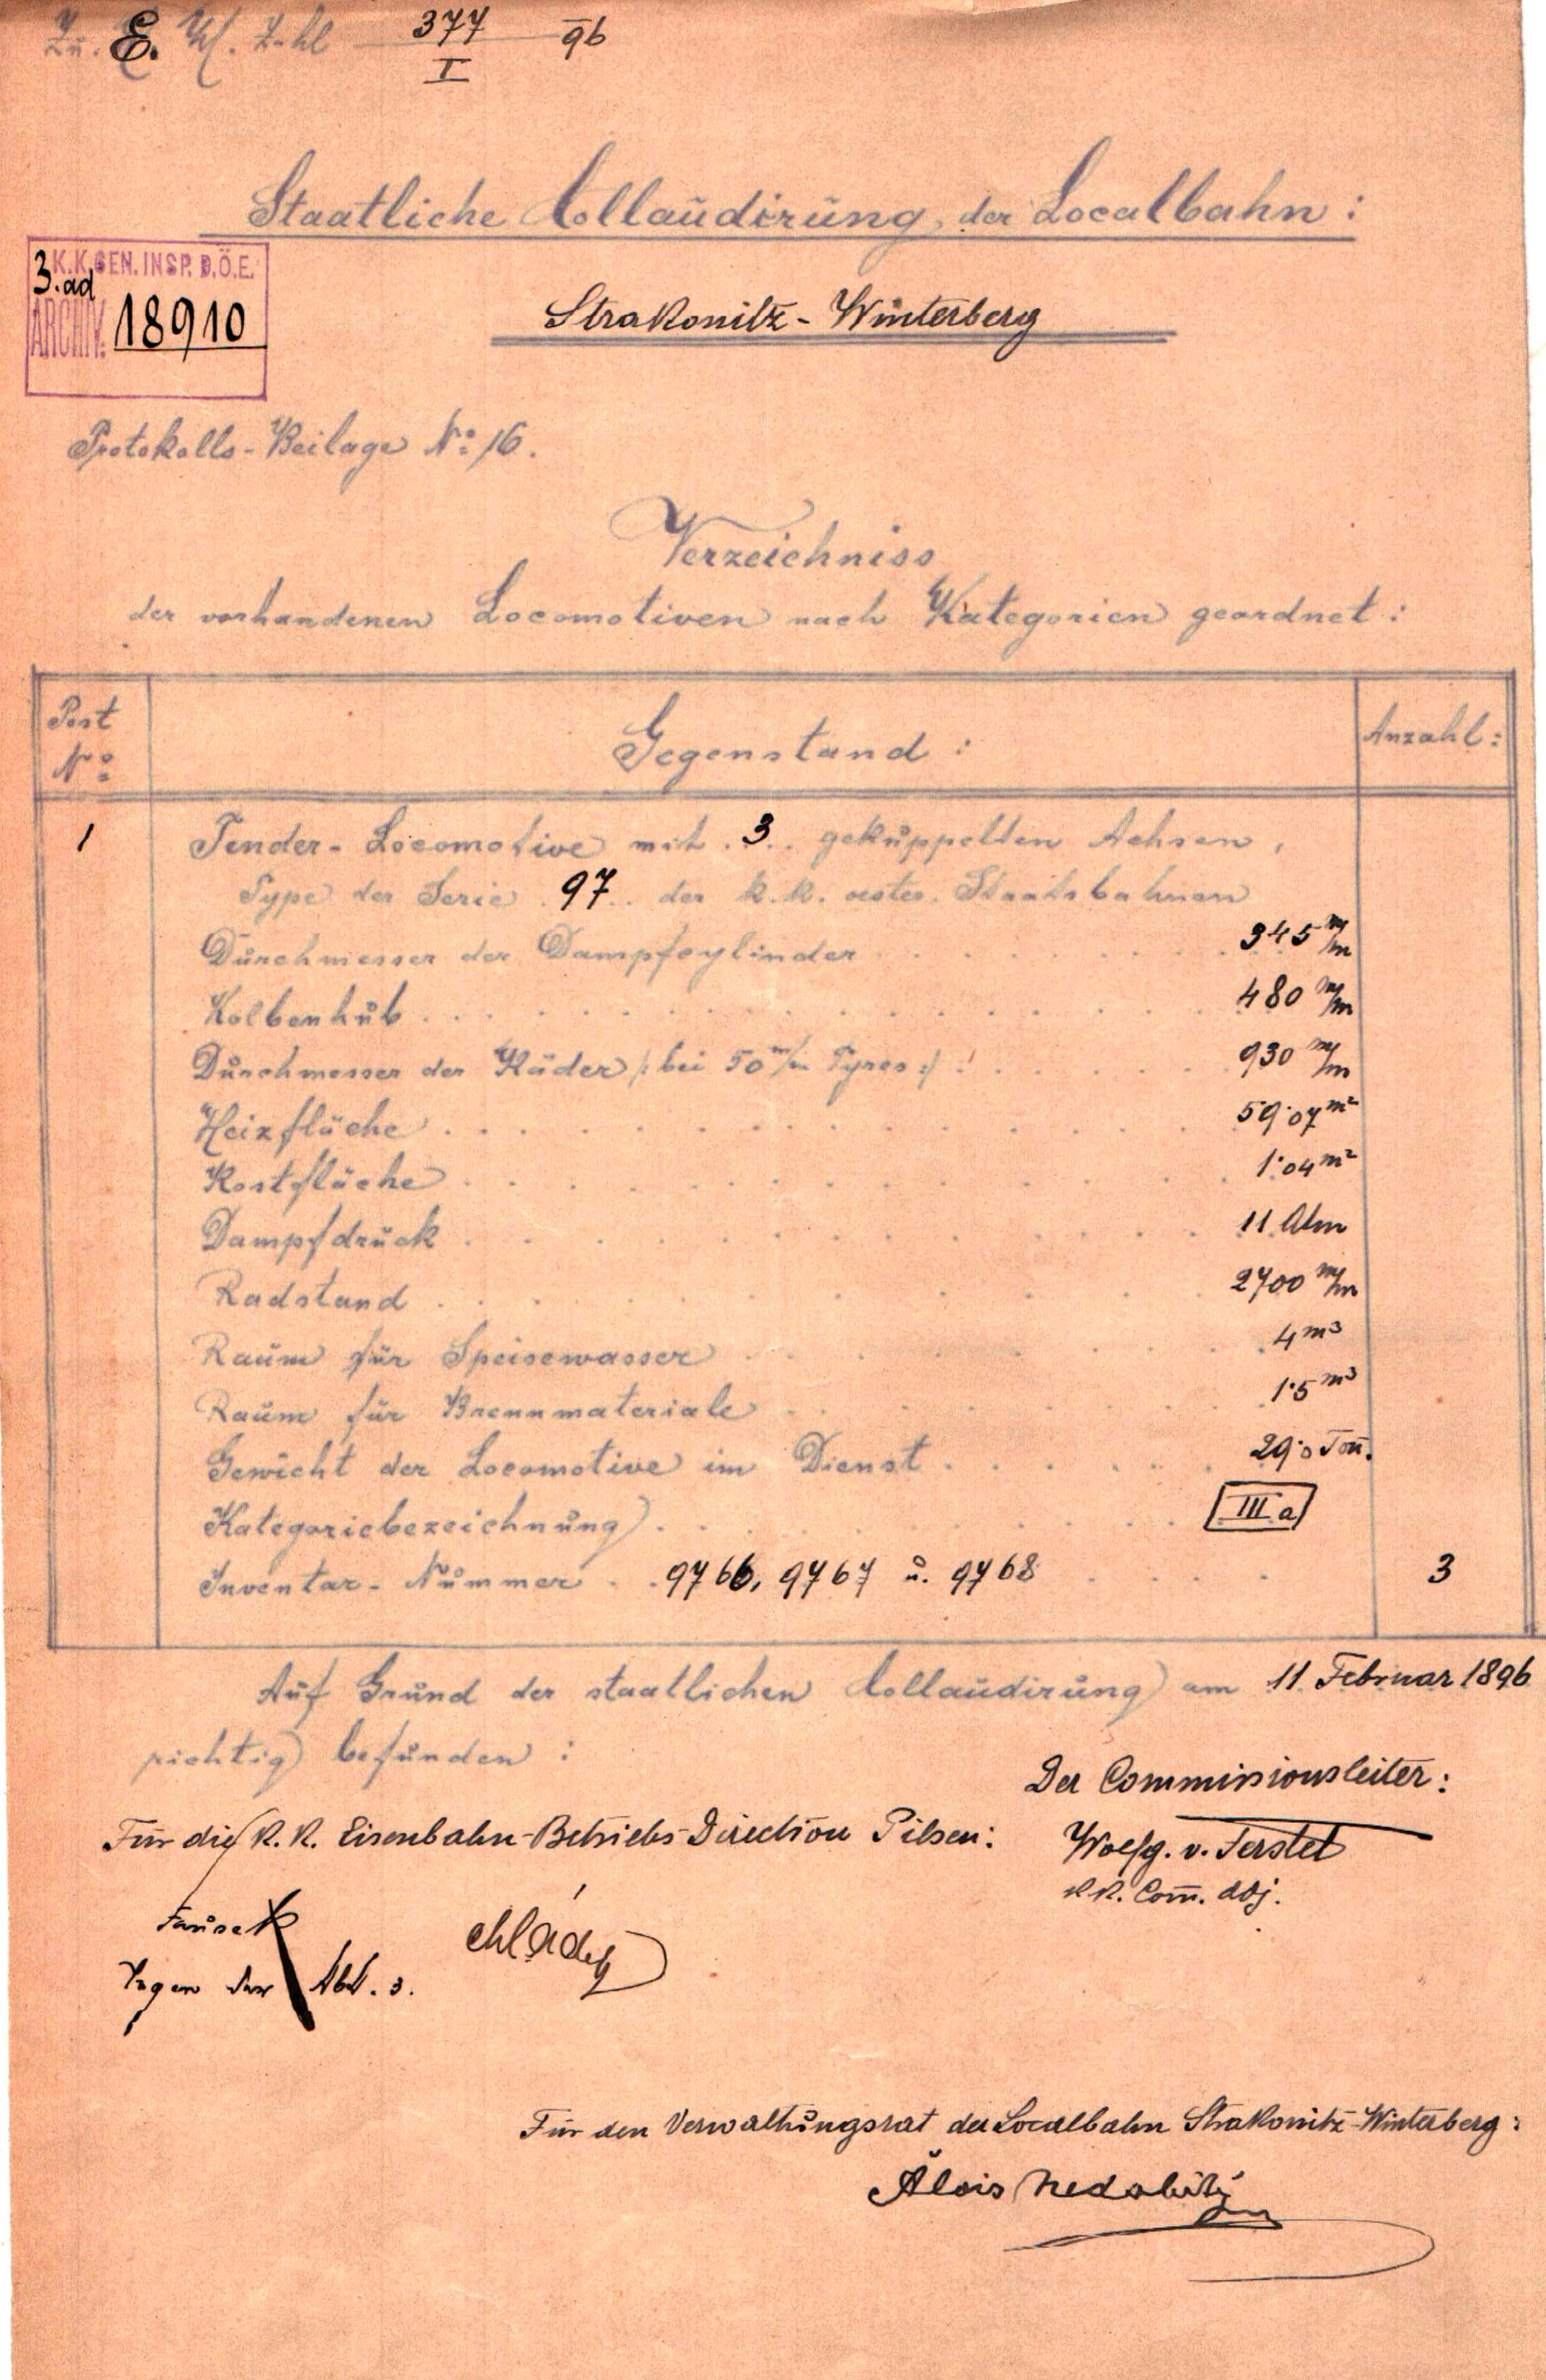 Zu. E. Zhl 377/I 96
Staatliche Collaudirung der Localbahn:
K.K. GEN. INSP. D.Ö.E.
3. ad
ARCHIV. 18910
Strakonitz - Winterberg
Protokolls - Beilage No 16.
Verzeichniss
der vorhandenen Locomotiven nach Kategorien geordnet:
Post No Gegenstand: Anzahl:
1 Tender - Locomotive mit 3 gekuppelten Achsen,
Type der Serie 97 der k.k. oester. Staatsbahnen
Durchmesser der Dampfcylinder 345 m/m
Kolbenhub 480 m/m
Durchmesser der Räder /: bei 50 m/m Tyres :/ 930 m/m
Heizfläche 59·07 m²
Rostfläche 1·04 m²
Dampfdruck 11 Atm
Radstand 2700 m/m
Raum für Speisewasser 4 m³
Raum für Brennmateriale 1·5 m³
Gewicht der Locomotive im Dienst 29·0 Ton.
Kategoriebezeichnung III a
Inventar - Nummer 9766, 9767 u. 9768 3
Auf Grund der staatlichen Collaudirung am 11 Februar 1896
richtig befunden:
Der Commissionsleiter:
Für die K.K. Eisenbahn-Betriebs-Direction Pilsen:
Wolfg. v. Ferstel
K.K. Com. Adj.
Chládek
Abt. 3.
Für den Verwaltungsrat der Localbahn Strakonitz-Winterberg:
Alois